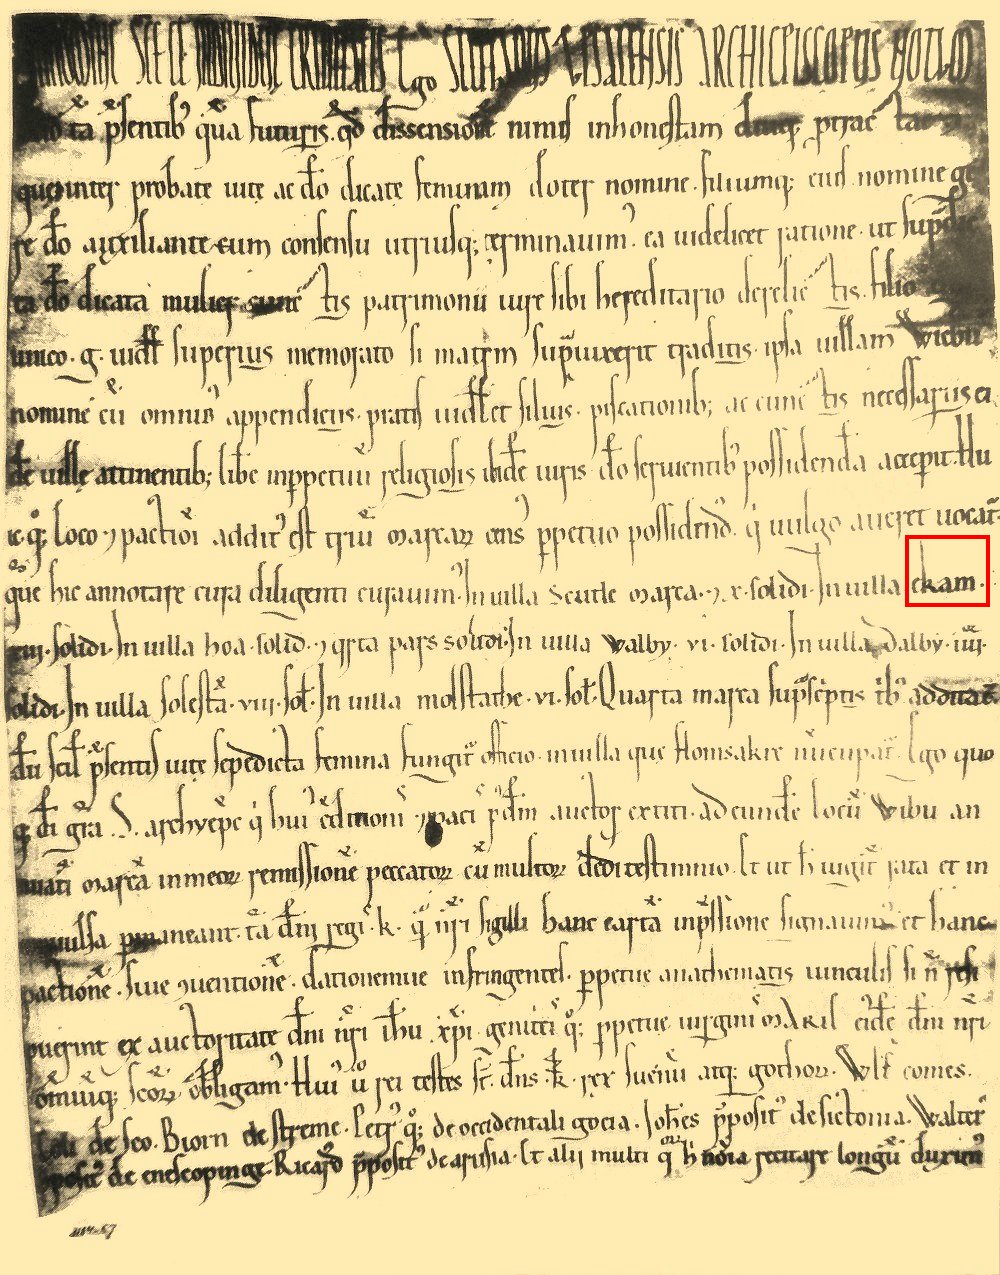 Ego
ta psentib qua futuris qd dissensione nimis inhonestam
queinter probate uite ac do dicate feminam doter nomine filiumq; eius nomine ge
re do auxiliante eum consensu utriusq; terminauim. ea uidelicet ratione ut
ta do dicata mulier tis patrimonii iure sibi hereditario derelic tis. filio
unico. g. superius memorato si matrem supuixerit traditis ipsa uillam
nomine cu omnib appendiciis pratis uidl et siluis piscationib; ac cunc tis necessariis ei
de uille attinentib; libe inppetuu religiosis ibide iuris do seruientib possidenda accepit. Hu
ic q; loco pactioi addit est triu marcar cens ppetuo possidend q uulgo aueret uocat
que hic annotare cura diligenti curauim. In uilla Scutle marca. x. solidi. In uilla ekam.
xiii. solidi. In uilla hoa. solid. qrta pars solidi. In uilla walby. vi. solidi. In uilla dalby. iiii.
solidi. In uilla solesta. viii. sol. In uilla molstathe. vi. sol. Quarta marca supscriptis ib additat
du scil psentis uite sepedicta femina fungit officio. in uilla que flomsakre nuncupat. Ego quo
q; di gra. S. archyepc q hui paci auctor extiti. ad eunde locu Wibu an
marca inmeor remissione peccator cu multor dedi testimnio. Et ut h iugit rata et in
pmaneant. ta dni regi. k. q nri sigilli hanc carta inpssione signauim et hanc
pactione. siue uentione. dationemue infringentes. ppetue anathematis uinculis si n resi
puerint ex auctoritate dni nri ihu xpi. geniteci q; ppetue uirginis MARIE eide dni nri
omiuq; scor obligam. Hui u rei testes st. dns. k. rex sueuu atq; gothor. comes.
de seo. Biorn de streme. q; de occidentali gocia. Johes pposit de sictonia. Walter
pposit de enescopinge. Ricard pposit de arusia. Et alii multi q h noia recitare longu duxim